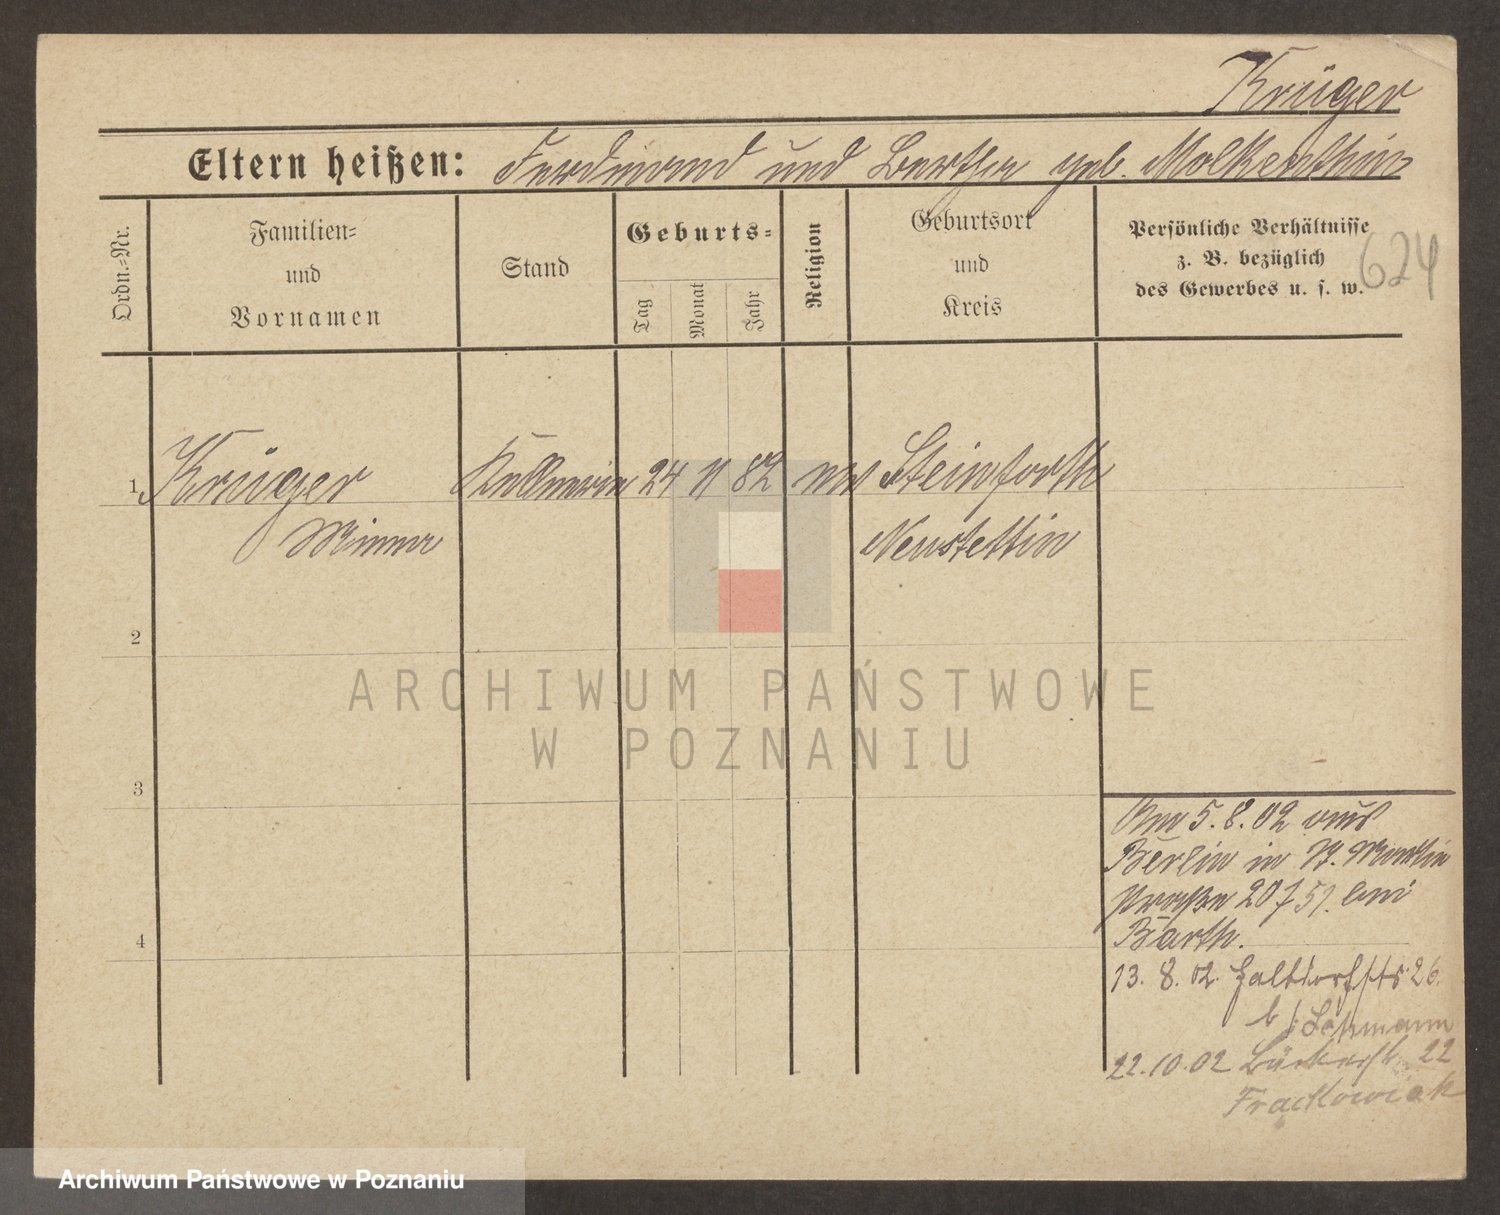 Krüger
Eltern heißen: Ferdinand und Bertha geb. Molkenthin
Ordn.-Nr.
Familien-
und
Vornamen
Stand
Geburts-
Tag
Monat
Jahr
Religion
Geburtsort
und
Kreis
Persönliche Verhältnisse
z. B. bezüglich
des Gewerbes u. s. w.
624
1 Krüger Kellnerin 24 11 82 ev Steinforth
Minna Neustettin
2
3
4
Am 5.8.02 aus
Berlin in St. Martin
straße 20 bei
Barth.
13. 8. 02. Halbdorfstr 26.
b/ Lehmann
22.10.02 Bäckerstr. 22
Frąckowiak
ARCHIWUM PAŃSTWOWE
W POZNANIU
Archiwum Państwowe w Poznaniu